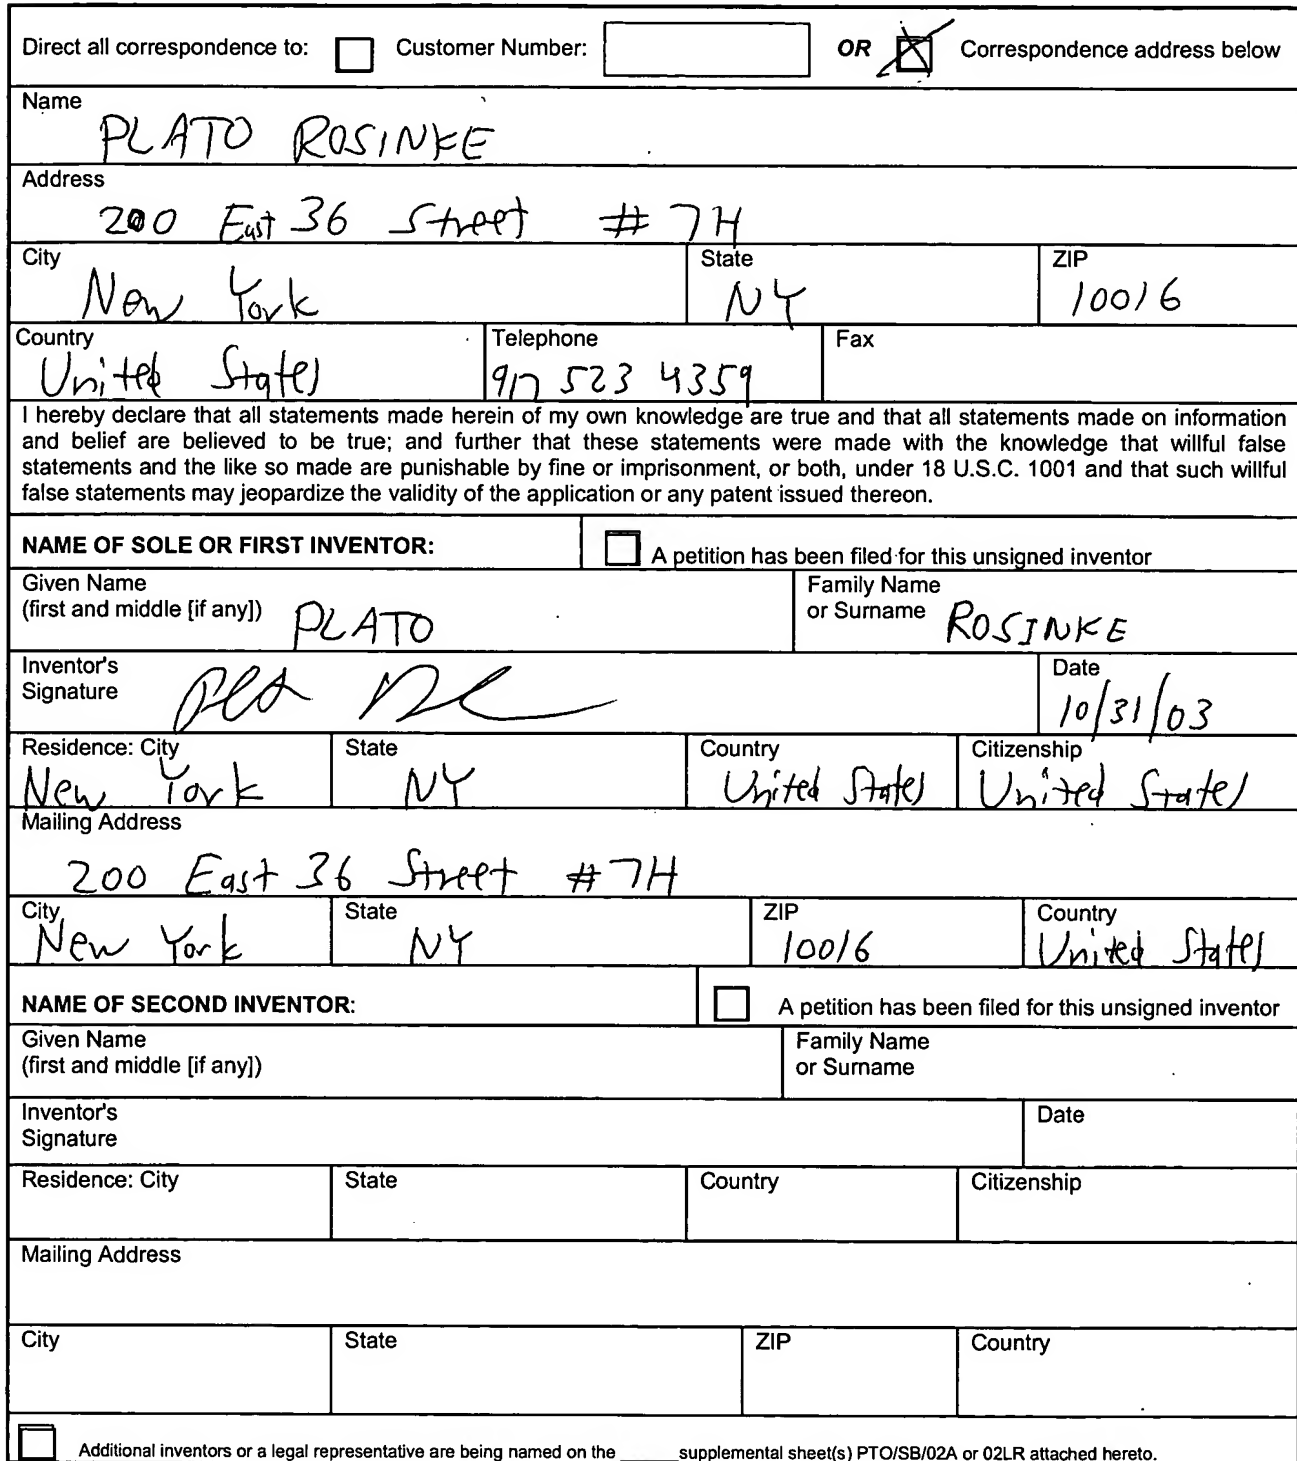 Direct all correspondence to: Customer Number: OR Correspondence address below
Name
PLATO ROSINKE
Address
200 East 36 Street # 7H
City State ZIP
New York NY 10016
Country Telephone Fax
United States 917 523 4359
I hereby declare that all statements made herein of my own knowledge are true and that all statements made on information
and belief are believed to be true; and further that these statements were made with the knowledge that willful false
statements and the like so made are punishable by fine or imprisonment, or both, under 18 U.S.C. 1001 and that such willful
false statements may jeopardize the validity of the application or any patent issued thereon.
NAME OF SOLE OR FIRST INVENTOR: A petition has been filed for this unsigned inventor
Given Name Family Name
(first and middle [if any]) PLATO or Surname ROSINKE
Inventor's Date
Signature 10/31/03
Residence: City State Country Citizenship
New York NY United States United States
Mailing Address
200 East 36 Street # 7H
City State ZIP Country
New York NY 10016 United States
NAME OF SECOND INVENTOR: A petition has been filed for this unsigned inventor
Given Name Family Name
(first and middle [if any]) or Surname
Inventor's Date
Signature
Residence: City State Country Citizenship
Mailing Address
City State ZIP Country
Additional inventors or a legal representative are being named on the ______supplemental sheet(s) PTO/SB/02A or 02LR attached hereto.